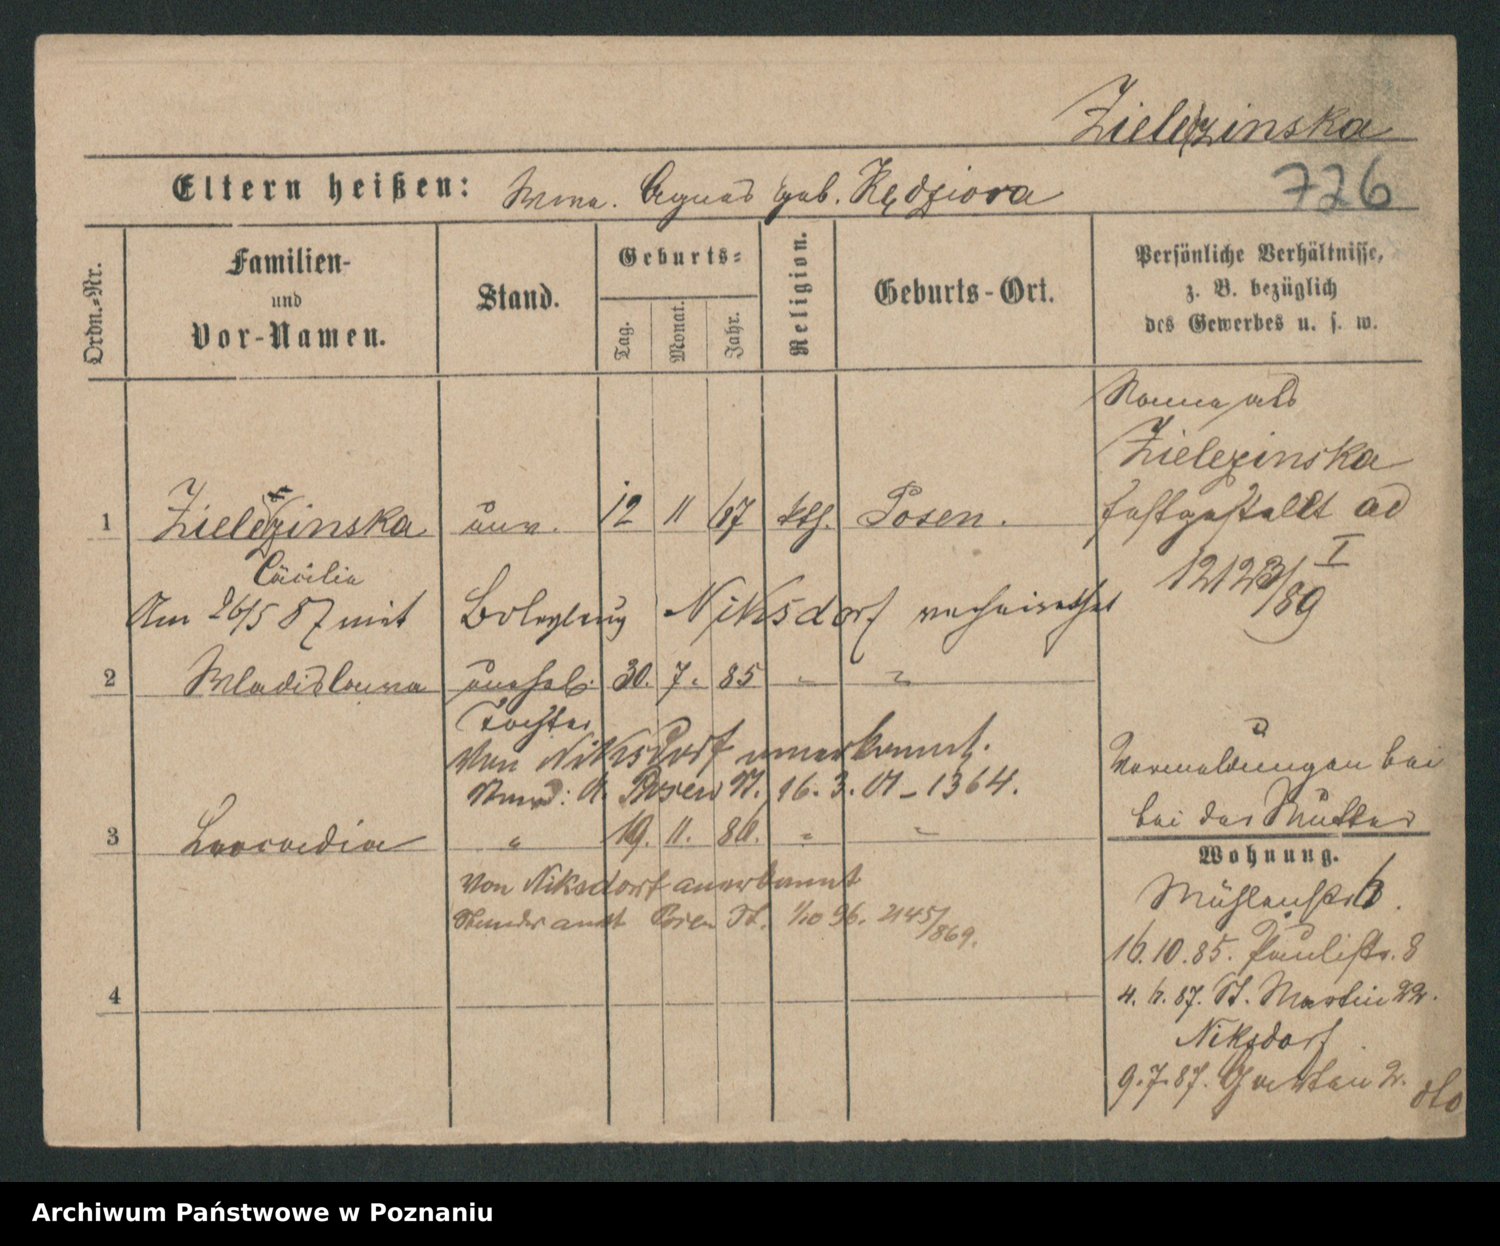 Zielezinska
726
Eltern heißen: Wwe. Agnes geb. Kędziora
Ordn.-Nr.
Familien-
und
Vor-Namen.
Stand.
Geburts-
Tag.
Monat.
Jahr.
Religion.
Geburts-Ort.
Persönliche Verhältnisse,
z. B. bezüglich
des Gewerbes u. s. w.
Name als
Zielezinska
festgestellt ad
I
12123/89
1 Zielezinska unv. 12 11 67 kth. Posen.
Cäcilie
Am 26/5 87 mit Niksdorf verheirathet
2 Wladislawa unehel. 30. 7. 85 " "
Tochter
Von Niksdorf anerkannt.
Stand: A. Posen St. 16. 3. 01 - 1364.
3 Leocadia " 19. 11. 86. " "
von Niksdorf anerkannt
Standes amt Posen St. 1/10 96. 2145/869.
4
Vermeldungen bei
bei der Mutter
Wohnung.
Mühlenstr 6.
16.10.85. Paulistr. 8
4. 6. 87. St. Martin 22.
Niksdorf
9.7.87. Garten 2.
dto
Archiwum Państwowe w Poznaniu